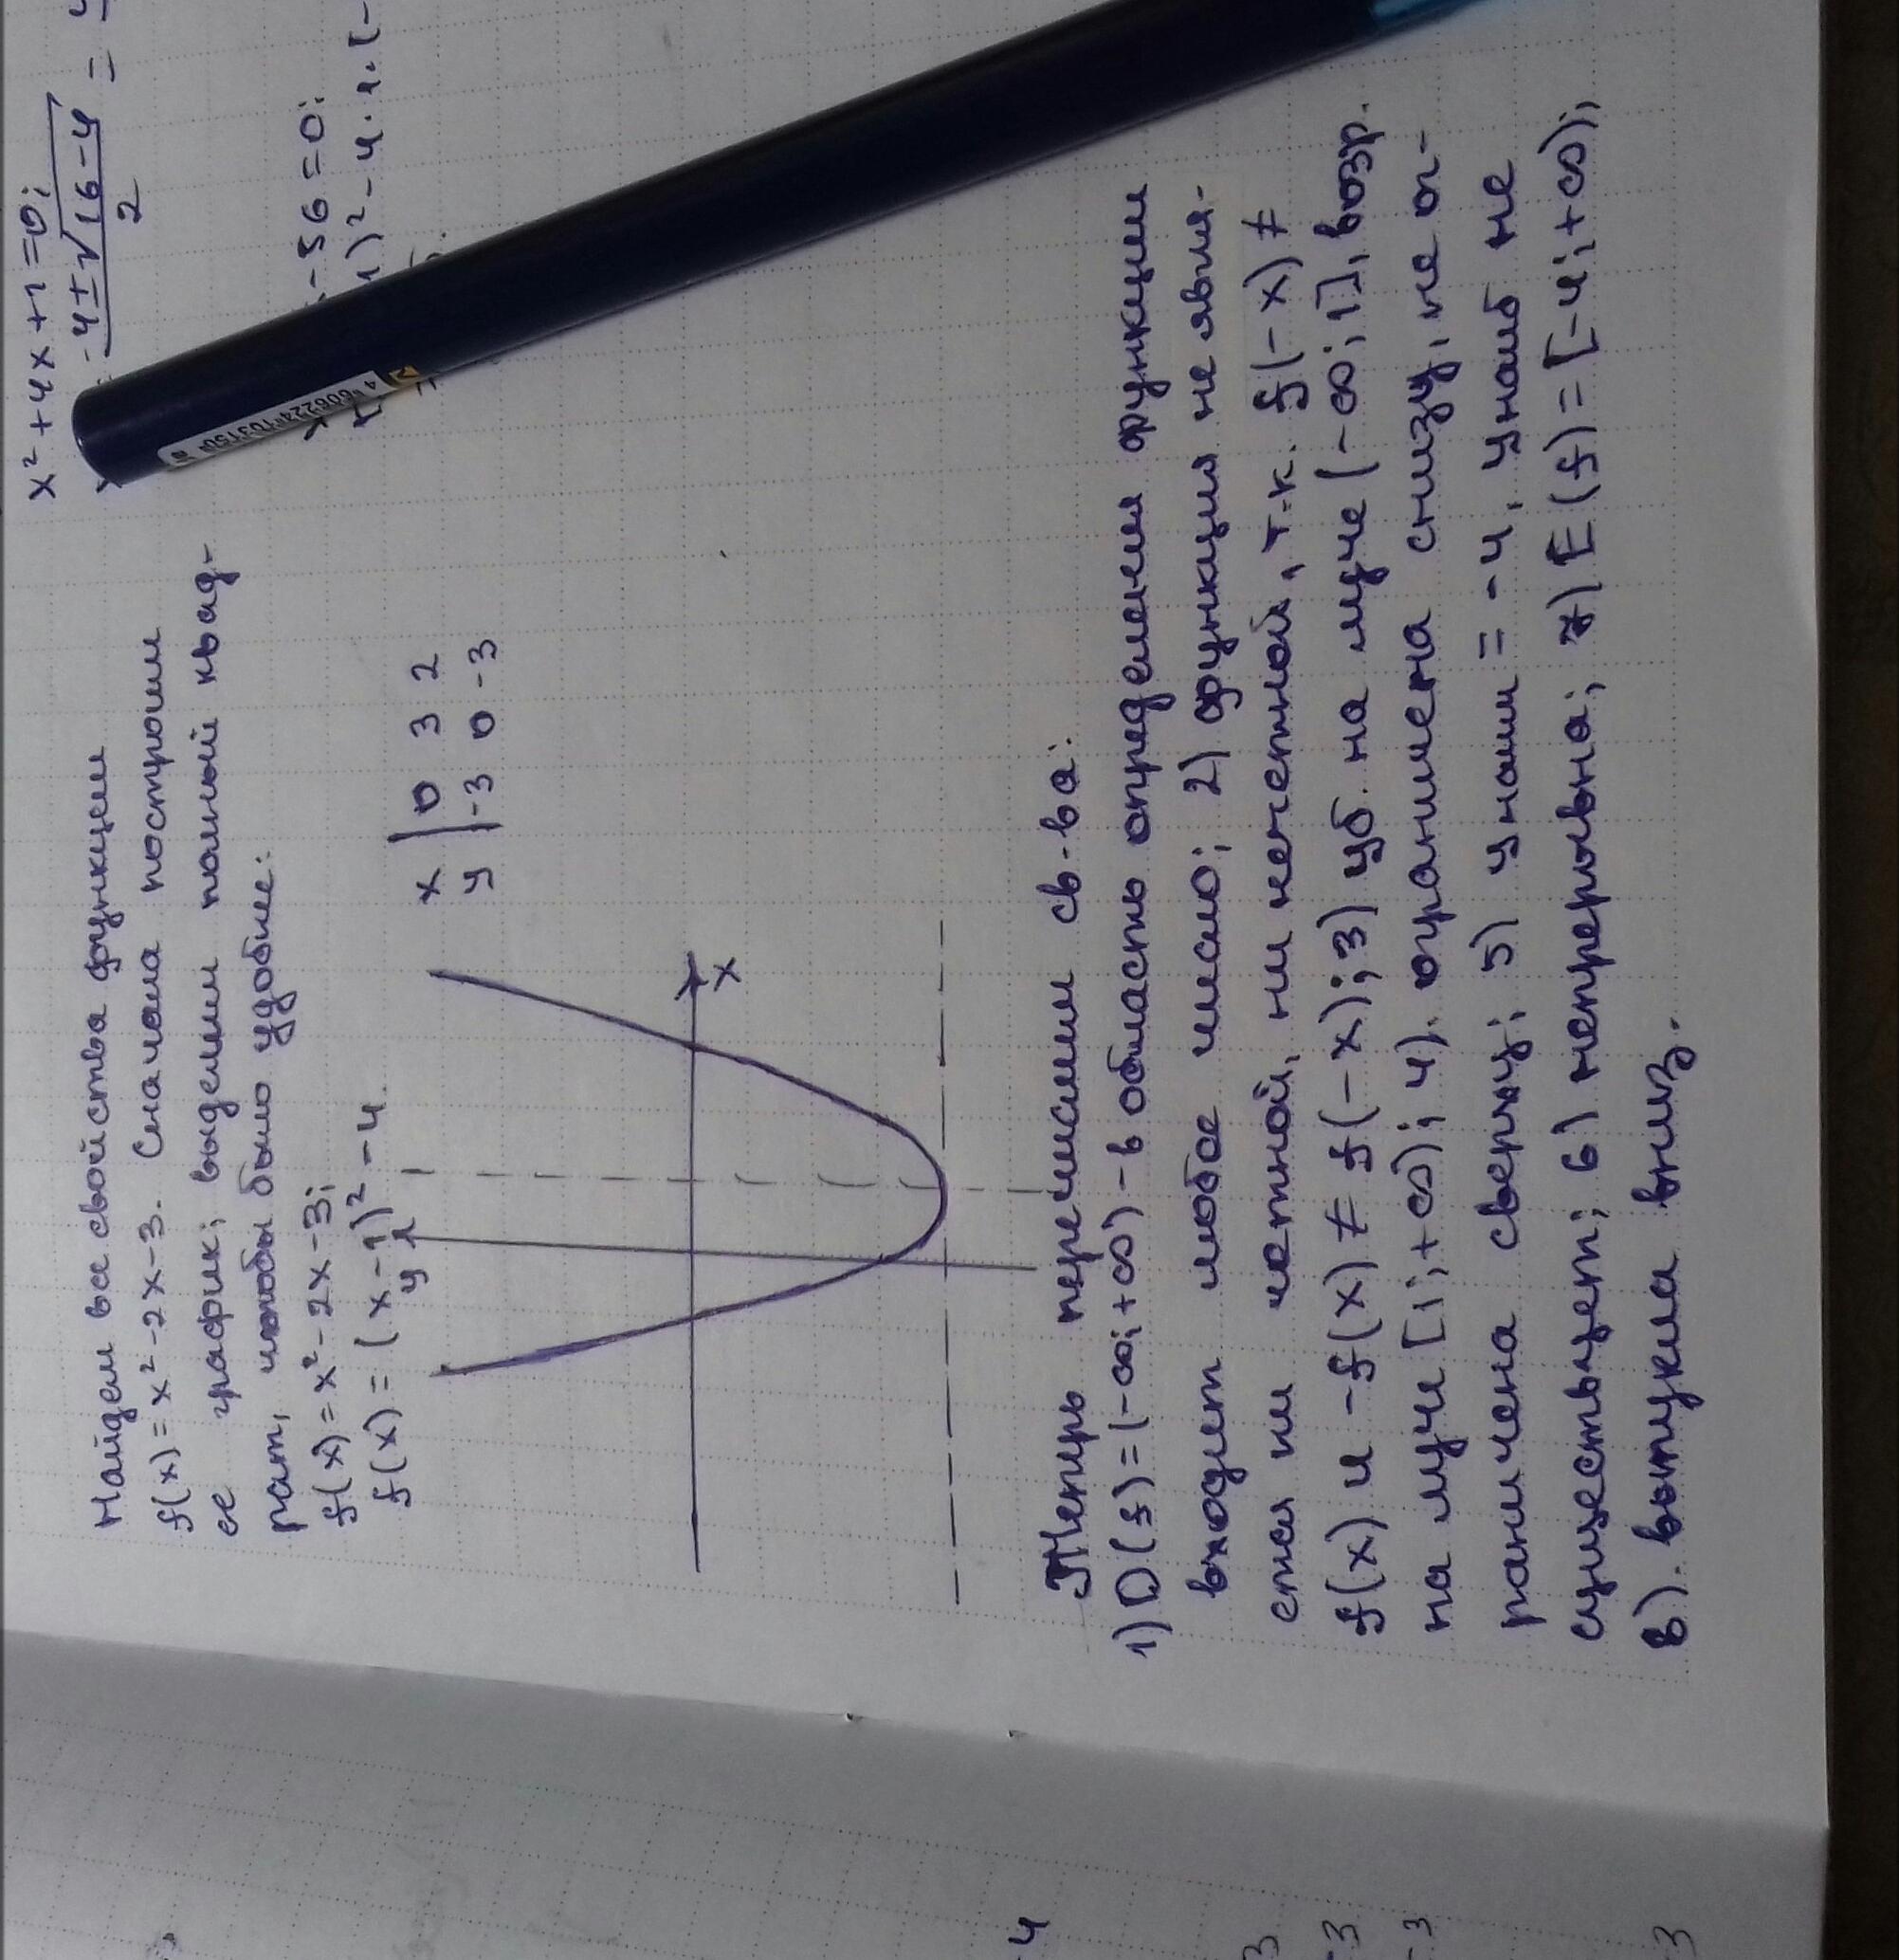 Найдем все свойства функции
f(x) = x² - 2x - 3. Сначала построим
ее график; выделим полный квад-
рат, чтобы было удобнее:
f(x) = x² - 2x - 3;
f(x) = (x - 1)² - 4
y
x | 0 3 2
y | -3 0 -3
x
Теперь перечислим св-ва:
1) D(f) = (-∞; +∞) - в область определения функции
входит любое число; 2) функция не явля-
ется ни четной, ни нечетной, т.к. f(-x) ≠
f(x) и -f(x) ≠ f(-x); 3) уб. на луче (-∞; 1], возр.
на луче [1; +∞); 4). ограничена снизу, не ог-
раничена сверху; 5) y наим = -4, y наиб не
существует; 6) непрерывна; 7) E(f) = [-4; +∞);
8). выпукла вниз.
x² + 4x + 1 = 0;
-4 ± √16 - 4
2
=
- 56 = 0;
1)² - 4 · 1 · (-
4606224 103150
-4
3
-3
-3
3